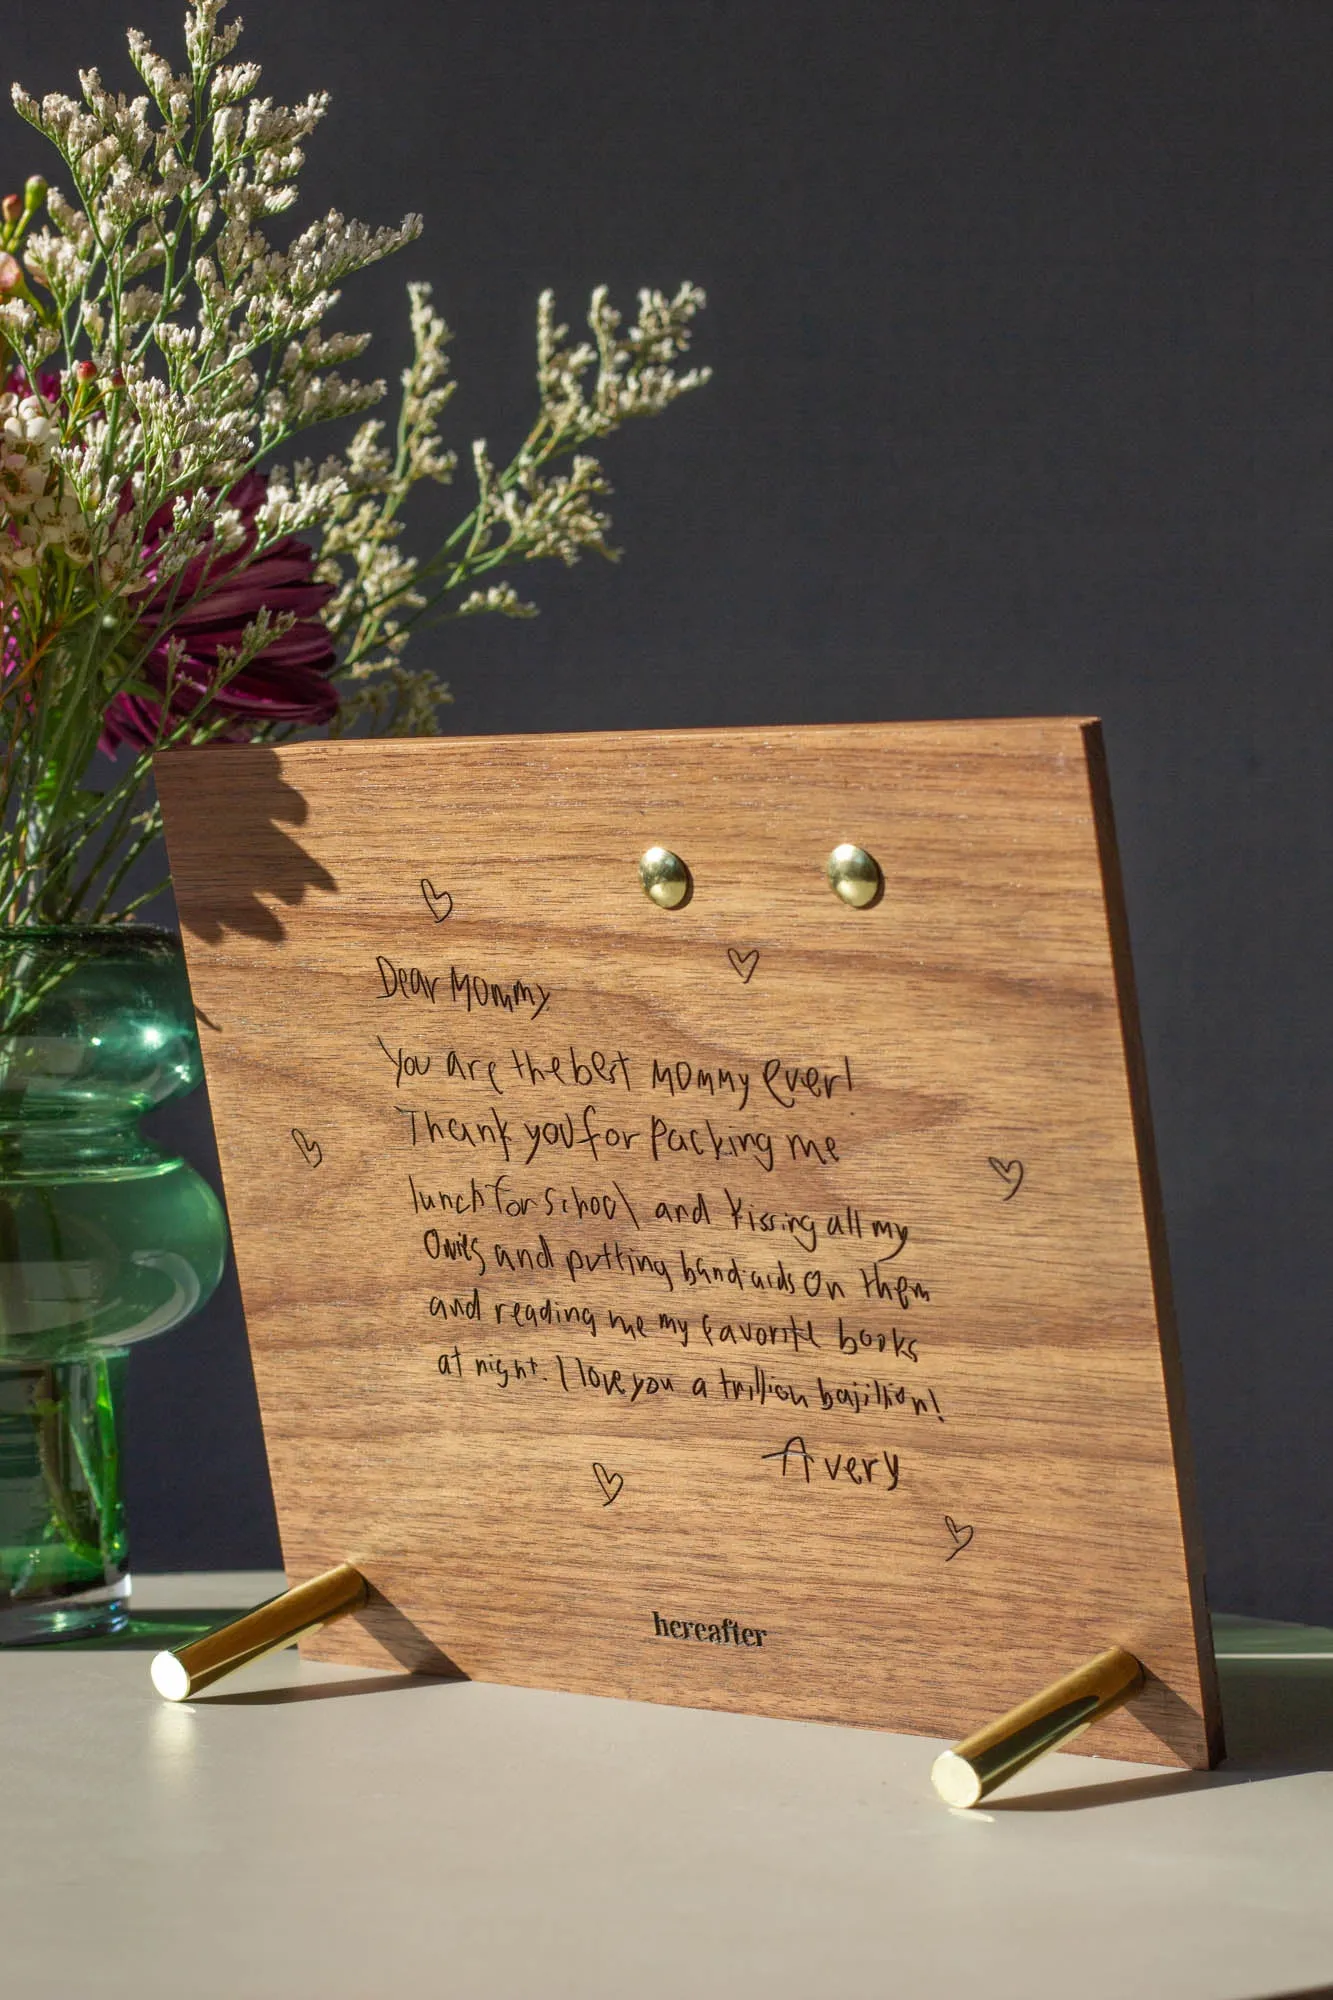 Dear Mommy,
You are the best Mommy ever!
Thank you for Packing me
lunch for school and kissing all my
Owies and putting bandaids On them
and reading me my favorite books
at night. I love you a trillion bajillion!
Avery
hereafter